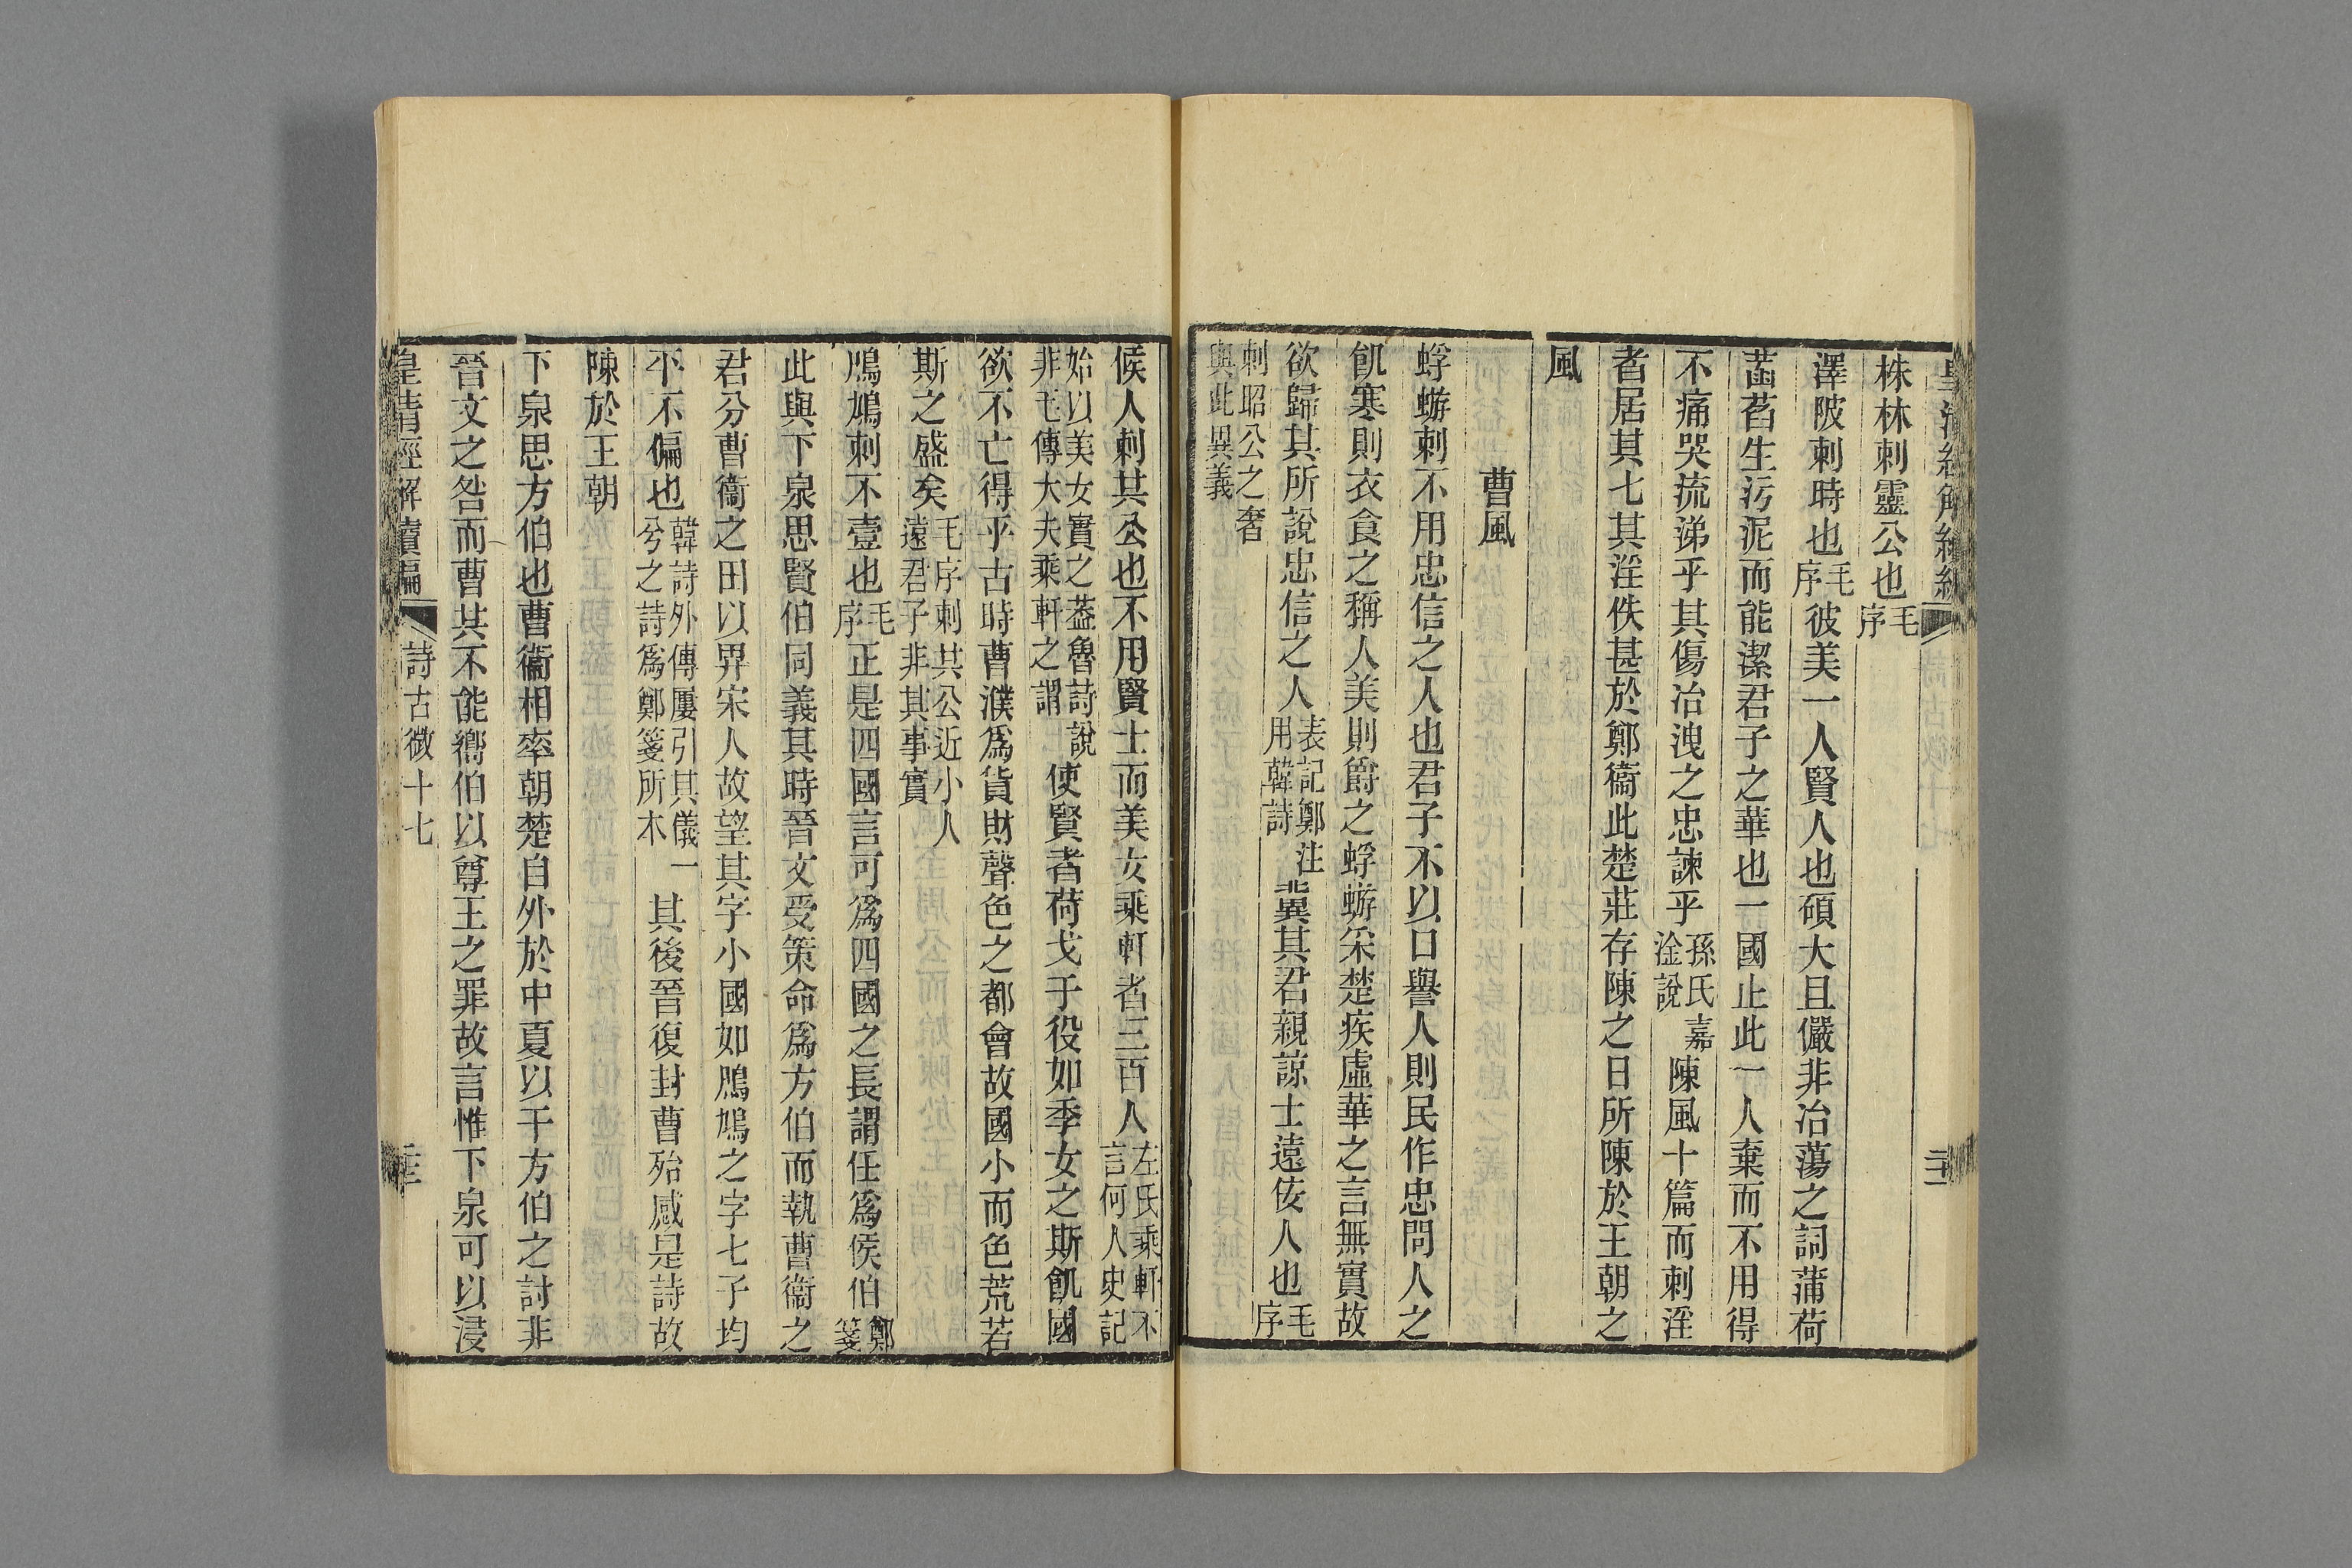 株林刺靈公也毛序
澤陂刺時也毛序彼美一人賢人也碩大且儼非冶蕩之詞蒲荷
菡萏生污泥而能潔君子之華也一國止此一人棄而不用得
不痛哭流涕乎其傷冶洩之忠諫乎孫氏嘉淦說陳風十篇而刺淫
者居其七其淫佚甚於鄭衞此楚莊存陳之日所陳於王朝之
風
曹風
蜉蝣刺不用忠信之人也君子不以口譽人則民作忠問人之
飢寒則衣食之稱人美則爵之蜉蝣采楚疾虛華之言無實故
欲歸其所說忠信之人表記鄭注用韓詩冀其君親諒士遠佞人也毛序
刺昭公之奢與此異義
候人刺其公也不用賢士而美女乘軒者三百人左氏乘軒不言何人史記
始以美女實之葢魯詩說非毛傳大夫乘軒之謂使賢者荷戈于役如季女之斯飢國
欲不亡得乎古時曹濮爲貨財聲色之都會故國小而色荒若
斯之盛矣毛序刺其公近小人遠君子非其事實
鳲鳩刺不壹也毛序正是四國言可爲四國之長謂任爲侯伯鄭箋
此與下泉思賢伯同義其時晉文受策命爲方伯而執曹衞之
君分曹衞之田以畀宋人故望其字小國如鳲鳩之字七子均
平不偏也韓詩外傳屢引其儀一兮之詩爲鄭箋所本其後晉復封曹殆感是詩故
陳於王朝
下泉思方伯也曹衞相率朝楚自外於中夏以干方伯之討非
晉文之咎而曹共不能嚮伯以尊王之罪故言惟下泉可以浸
皇清經解續編 詩古微十七